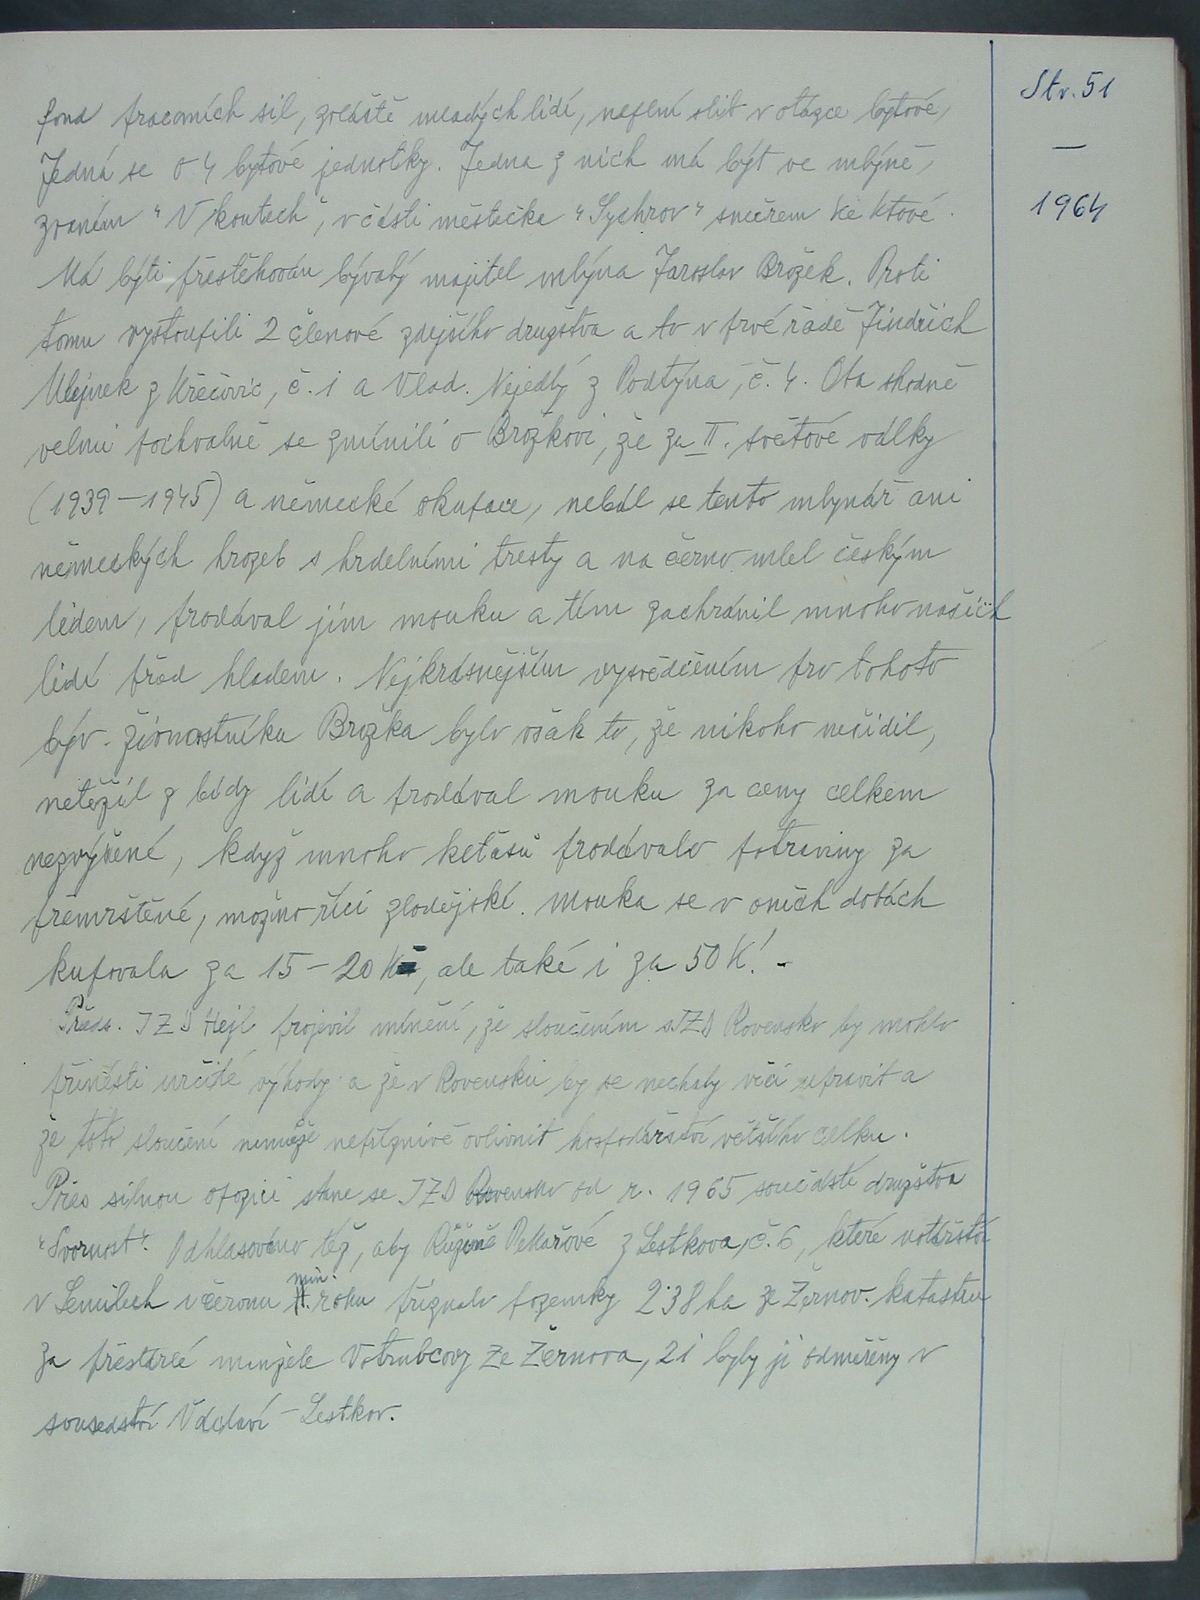 Str. 51
—
1964
fond pracovních sil, zvláště mladých lidí, neplní slib v otázce bytové,
Jedná se o 4 bytové jednotky. Jedna z nich má být ve mlýně,
zvaném "V koutech", v části městečka "Sychrov" směrem ke Ktové.
Má býti přestěhován bývalý majitel mlýna Jaroslav Brožek. Proti
tomu vystoupili 2 členové zdejšího družstva a to v prvé řadě Jindřich
Mlejnek z Křečovic, č. 1 a Vlad. Nejedlý z Podtýna, č. 4. Oba shodně
velmi pochvalně se zmínili o Brožkovi, že za II. světové války
(1939–1945) a německé okupace, nebál se tento mlynář ani
německých hrozeb s hrdelními tresty a na černo mlel českým
lidem, prodával jim mouku a tím zachránil mnoho našich
lidí před hladem. Nejkrásnějším vysvědčením pro tohoto
býv. živnostníka Brožka bylo však to, že nikoho nešidil,
netěžil z bídy lidí a prodával mouku za ceny celkem
nezvýšené, když mnoho keťasů prodávalo potraviny za
přemrštěné, možno říci zlodějské. Mouka se v oněch dobách
kupovala za 15–20 K, ale také i za 50 K! –
Předs. JZD Hejl projevil mínění, že sloučením s JZD Rovensko by mohlo
přinésti určité výhody a že v Rovensku by se nechaly věci upravit a
že toto sloučení nemůže nepříznivě ovlivnit hospodářství většího celku.
Přes silnou opozici stane se JZD Rovensko od r. 1965 součástí družstva
"Svornost". Odhlasováno též, aby Růženě Pekařové z Lestkova, č. 6, které notářství
v Semilech v červnu min. roku přiznalo pozemky 2˙38 ha ze Žernov. katastru
za přestárlé manžele Votrubcovy ze Žernova, 21 byly jí odměřeny v
sousedství Václaví – Lestkov.